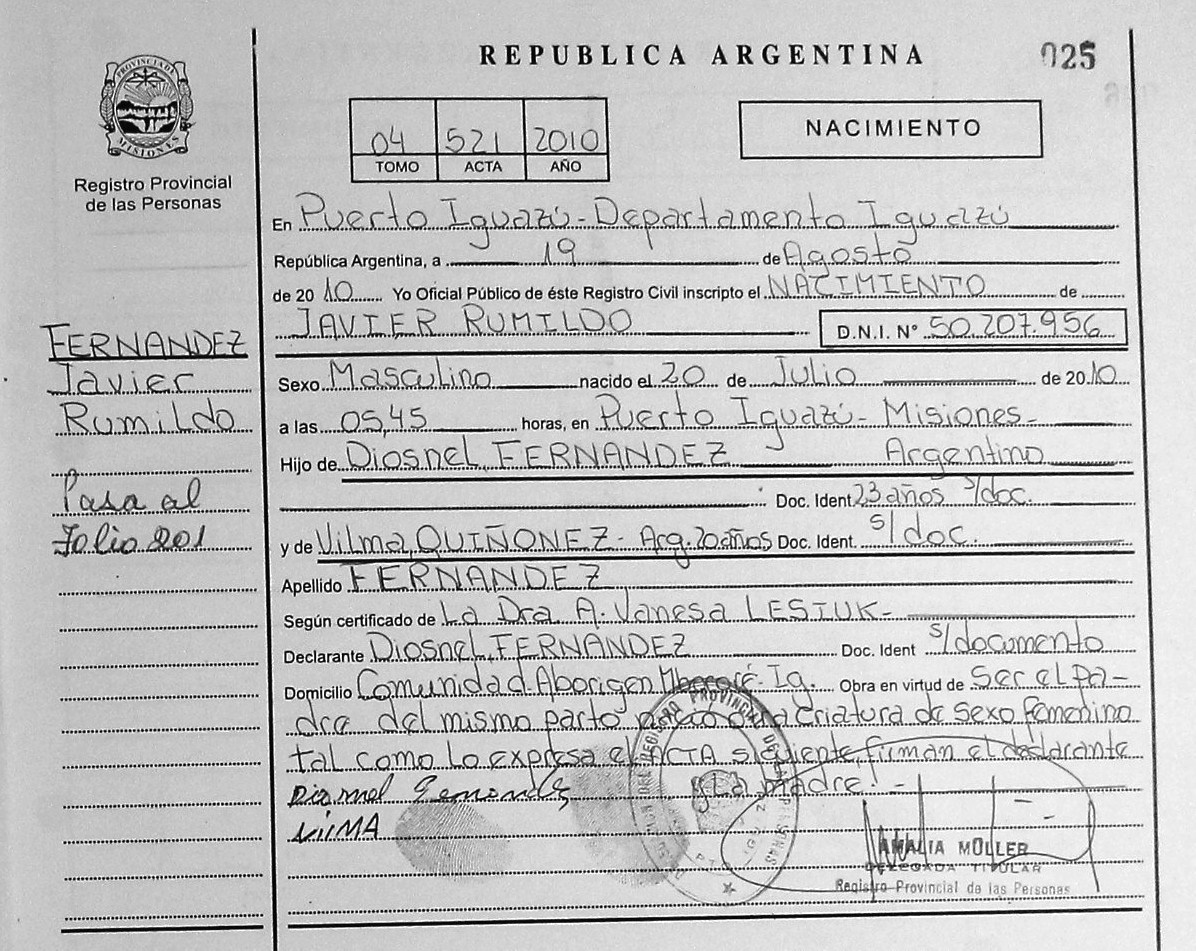 REPUBLICA ARGENTINA
025
PROVINCIA DE
MISIONES
Registro Provincial
de las Personas
04 521 2010
TOMO ACTA AÑO
NACIMIENTO
En Puerto Iguazú - Departamento Iguazú
República Argentina, a 19 de Agosto
de 2010 Yo Oficial Público de éste Registro Civil inscripto el NACIMIENTO de
JAVIER RUMILDO D.N.I. N° 50.207.956
FERNANDEZ
Javier
Rumildo
Pasa al
Folio 201
Sexo Masculino nacido el 20 de Julio de 2010
a las 05,45 horas, en Puerto Iguazú - Misiones -
Hijo de Diosnel, FERNANDEZ Argentino
Doc. Ident 23 años s/doc.
y de Vilma, QUIÑONEZ - Arg. 20 años Doc. Ident. s/doc.
Apellido FERNANDEZ
Según certificado de La Dra A. Vanesa LESIUK -
Declarante Diosnel, FERNANDEZ Doc. Ident s/documento
Domicilio Comunidad Aborigen Mbororé - Ig. Obra en virtud de Ser el pa-
dre del mismo parto nació otra criatura de sexo femenino
tal como lo expresa el ACTA siguiente, firman el declarante
y La madre! -
VilMA
AMALIA MÖLLER
DELEGADA TITULAR
Registro Provincial de las Personas